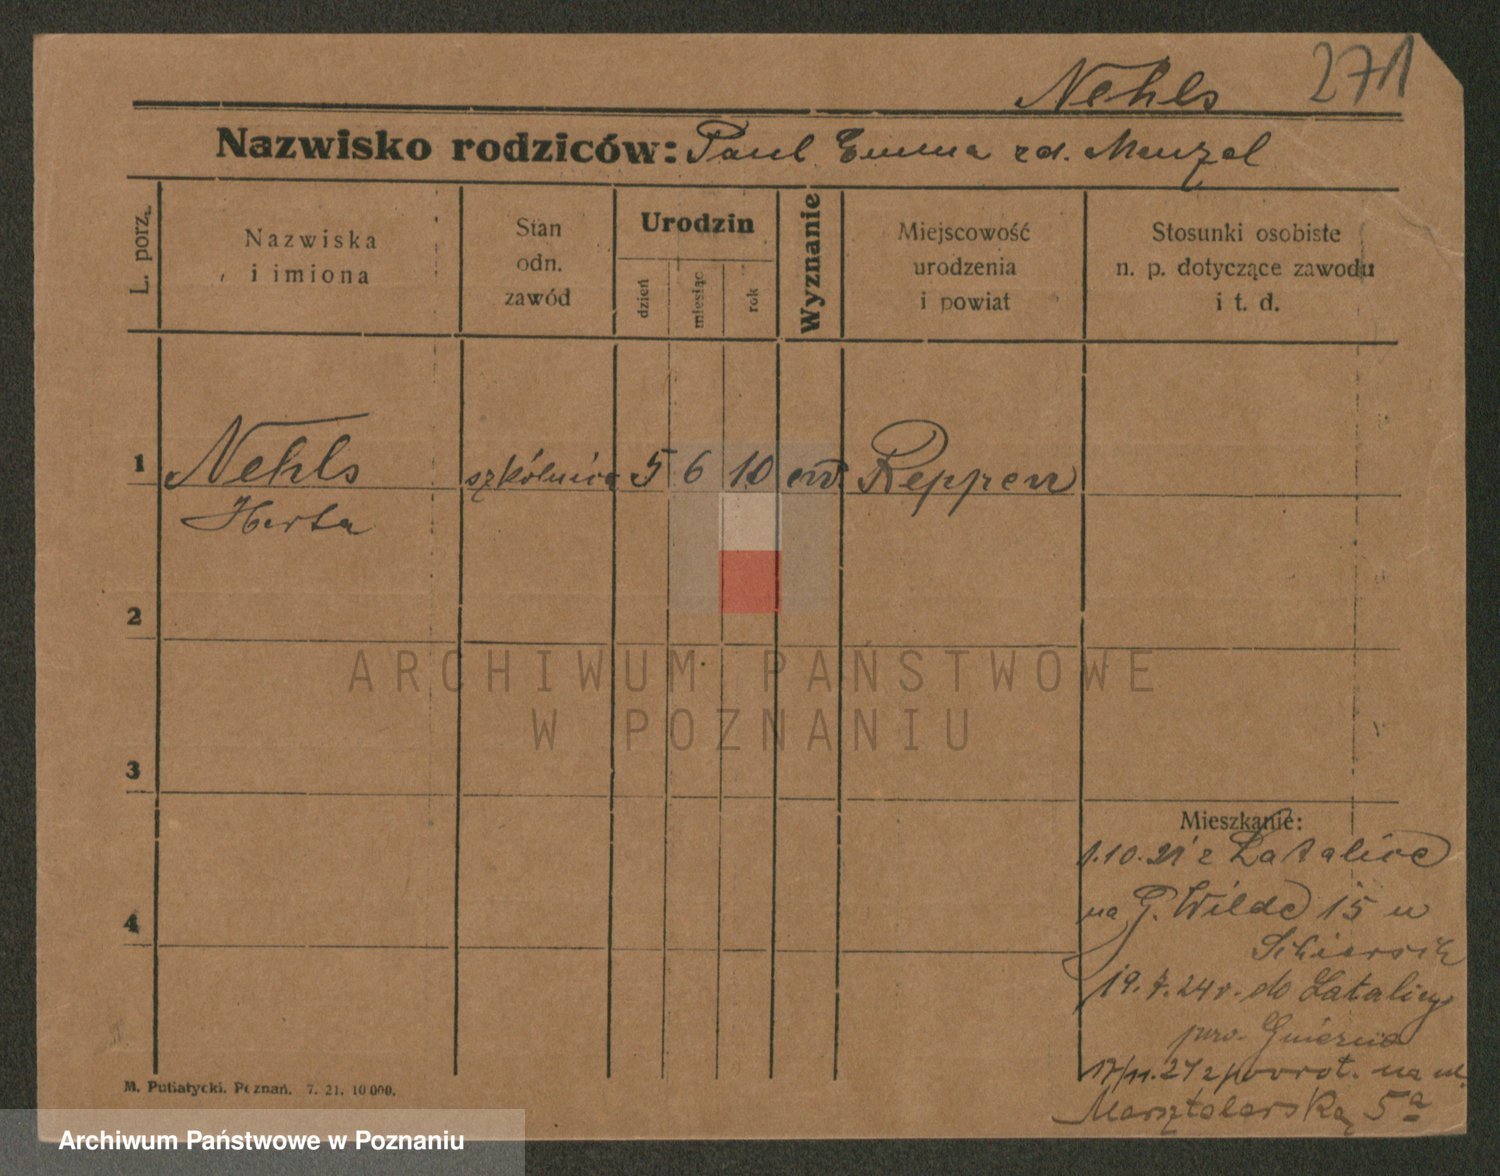 Nehls 271
Nazwisko rodziców: Paul Emma zd. Menzel
L. porz.
Nazwiska
i imiona
Stan
odn.
zawód
Urodzin
dzień
miesiąc
rok
Wyznanie
Miejscowość
urodzenia
i powiat
Stosunki osobiste
n. p. dotyczące zawodu
i t. d.
1 Nehls szkólnica 5 6 10 ew Reppen
Herta
2
3
4
ARCHIWUM PAŃSTWOWE
W POZNANIU
Mieszkanie:
1.10.21 z Latalice
na G. Wilde 15 u
19.7.24 r. do Latalicy
pow. Gniezno
17/11.27 z powrot. na ul.
Marsztalarską 5a
M. Putiatycki. Poznań. 7. 21. 10 000.
Archiwum Państwowe w Poznaniu